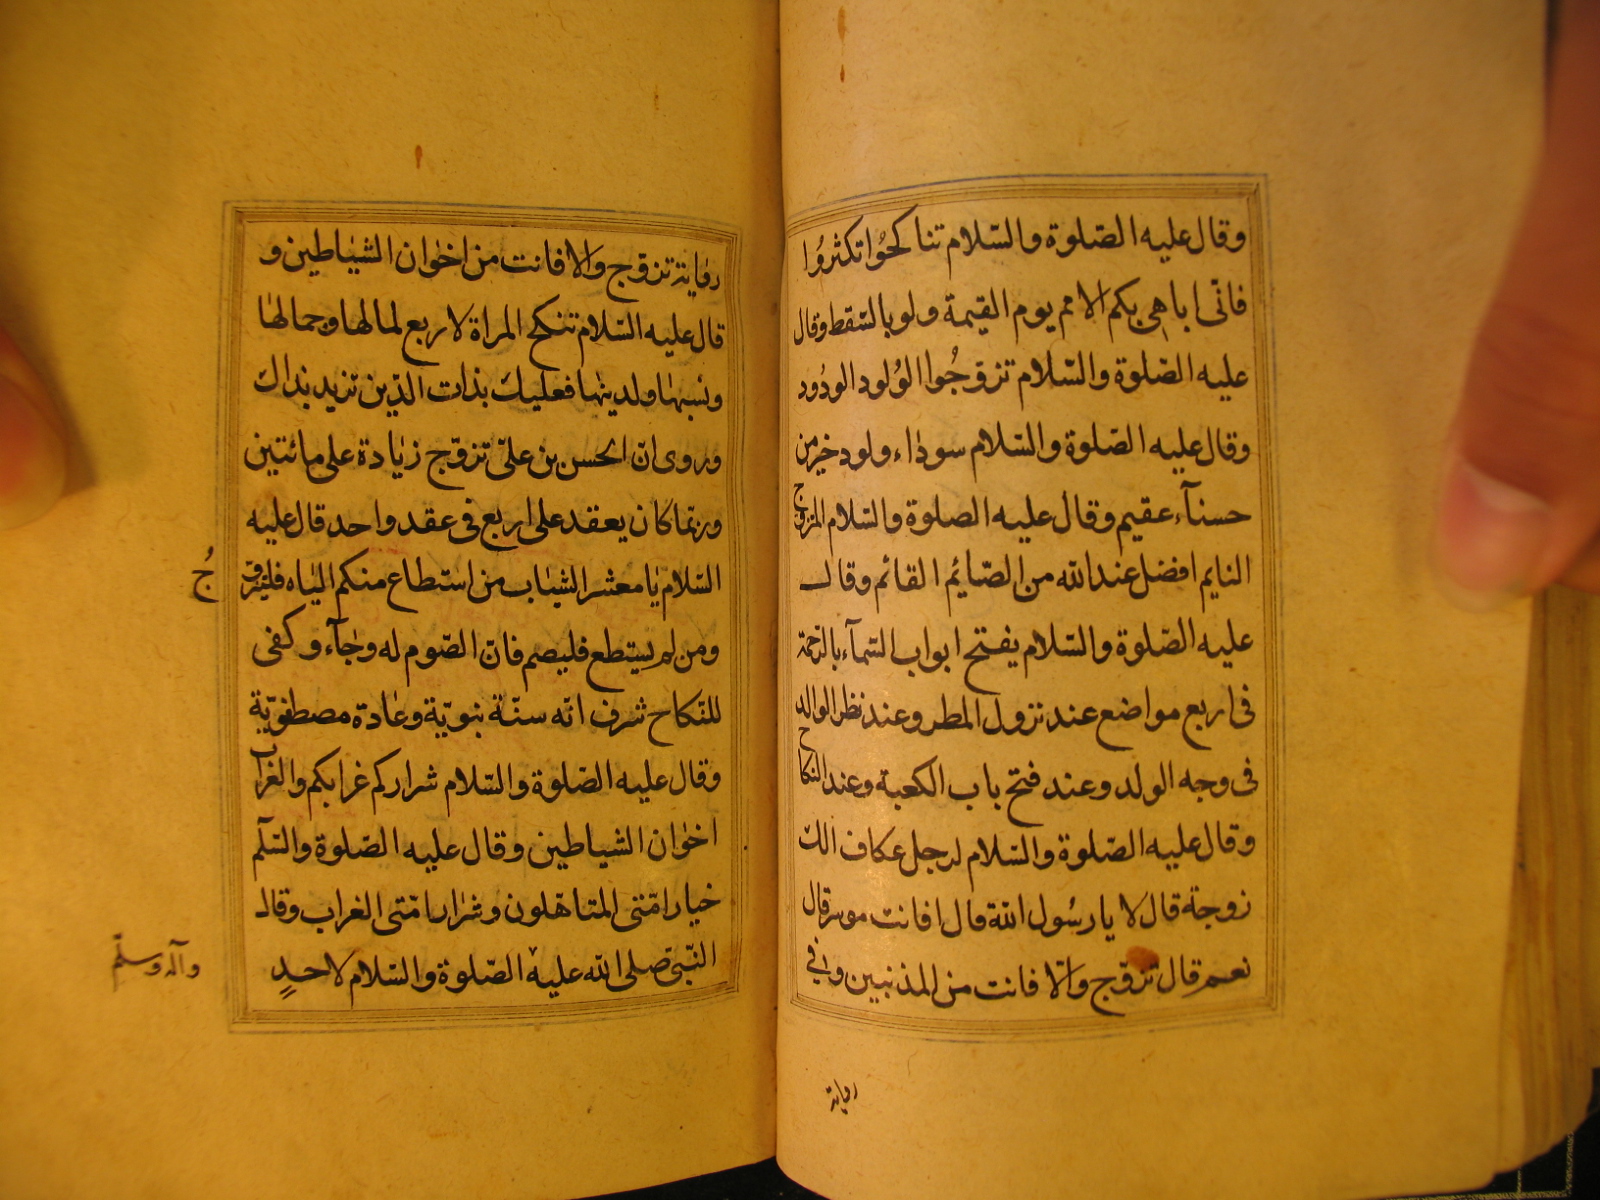 وقال عليه الصّلوة والسّلام تناكحوا تكثروا
فانّى اباهى بكم الامم يوم القيمة ولو بالسّقط وقال
عليه الصّلوة والسّلام تزوّجُوا الوُلود الودُود
وقال عليه الصّلوة والسّلام سوداء ولود خير من
حسنآء عقيم وقال عليه الصلوة والسّلام المزوّج
النايم افضل عند الله من الصّائم القائم وقال
عليه الصّلوة والسّلام يفتح ابواب السّمآء بالرّحمة
فى اربع مواضع عند نزول المطر وعند نظر الوالد
فى وجه الولد وعند فتح باب الكعبة وعند النكاح
وقال عليه الصّلوة والسّلام لرجل عكاف الك
زوجة قال لا يا رسُول الله قال افانت موسر قال
نعم قال تزوّج والّا فانت من المذنبين وفى
رواية
رواية تزوّج والا فانت من اخوان الشياطين و
قال عليه السّلام تنكح المراة لاربع لمالها وجمالها
ونسبها ولدينها فعليك بذات الدّين تزيد بذاك
وروى انّ الحسن بن علىّ تزوّج زيادة على مائتين
وربّما كان يعقد على اربع فى عقد واحد قال عليه
السّلام يا معشر الشباب من استطاع منكم الباه فليتزوّج
ومن لم يستطع فليصم فانّ الصّوم له وجآء وكفى
للنّكاح شرف انّه سنّة نبويّة وعادة مصطفويّة
وقال عليه الصّلوة والسّلام شراركم عزابكم والعزاب
اخوان الشياطين وقال عليه الصّلوة والسّلم
خيار امّتى المتاهّلون وشرار امّتى العزاب وقال
النّبىّ صلى الله عليه الصّلوة والسّلام لاحدٍ
وآله وسلّم